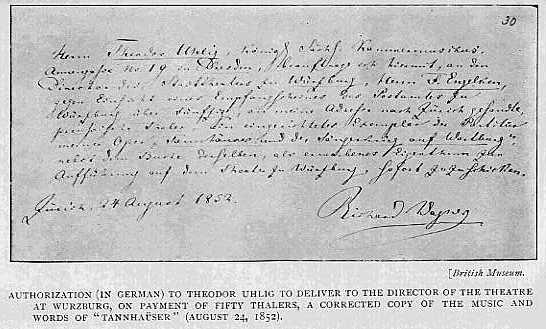 30
Herrn Theodor Uhlig, Königl. Sächs. Kammermusikus,
No 19 in Dresden, beauftrage ich hiermit, an den
Director des Stadttheaters zu Würzburg Herrn F. Engelken,
gegen eines Empfangscheines des Postamtes zu
Würzburg über fünfzig, an meine Adresse nach Zürich gesandte,
preussische Thaler, Ein Exemplar der Partitur
meiner Oper, Tannhäuser und der Sängerkrieg auf Wartburg",
nebst dem Buche derselben, als Eigenthum zur
Aufführung auf dem Theater zu Würzburg, sofort zuzuschicken.
Zürich, 24 August 1852.
Richard Wagner
[British Museum.
AUTHORIZATION (IN GERMAN) TO THEODOR UHLIG TO DELIVER TO THE DIRECTOR OF THE THEATRE
AT WURZBURG, ON PAYMENT OF FIFTY THALERS, A CORRECTED COPY OF THE MUSIC AND
WORDS OF "TANNHAÜSER" (AUGUST 24, 1852).